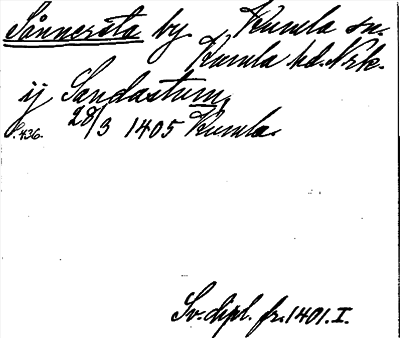 Sånnersta by. Kumla sn.
Kumla hd. Nrk.
ij Sandastum,
s. 436. 28/3 1405 Kumla.
Sv. dipl. fr. 1401. I.